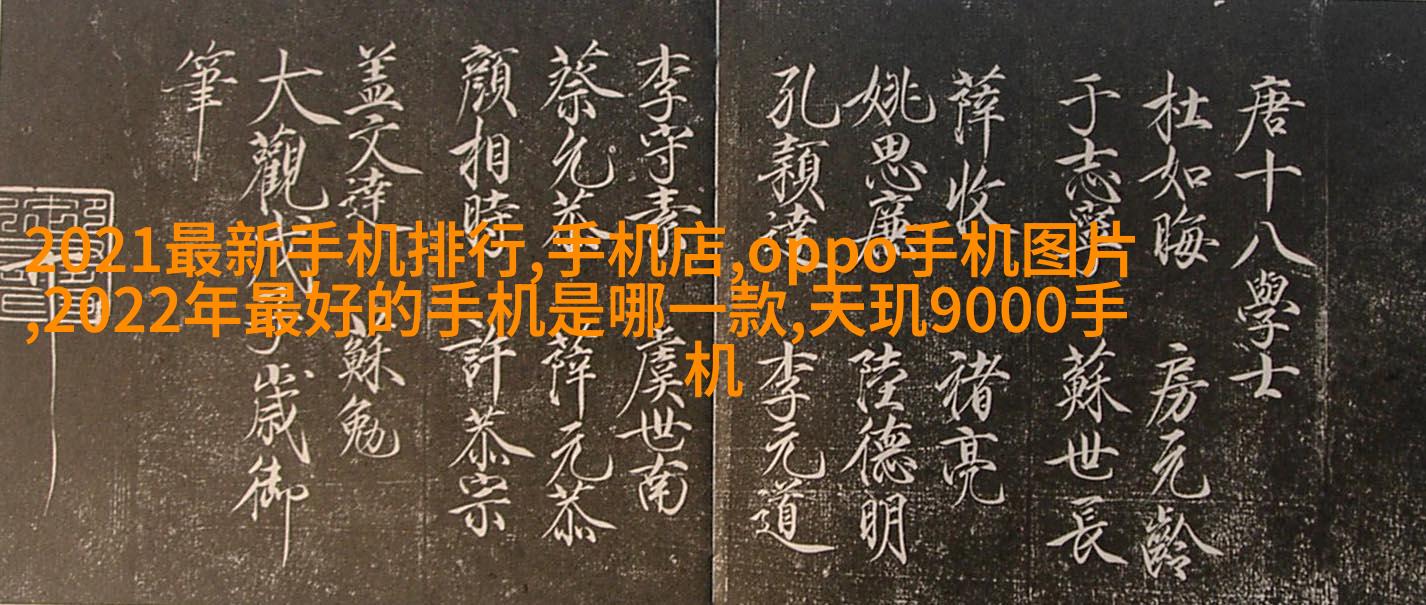 唐十八學士
杜如晦 房元齡
于志寧 蘇世長
薛收 褚亮
姚思廉 陸德明
孔穎達 李元道
李守素 虞世南
蔡允恭 薛元恭
顏相時 許恭宗
蓋文達 蘇勉
大觀戊子歲御
筆
2021最新手机排行,手机店,oppo手机图片
,2022年最好的手机是哪一款,天玑9000手
机